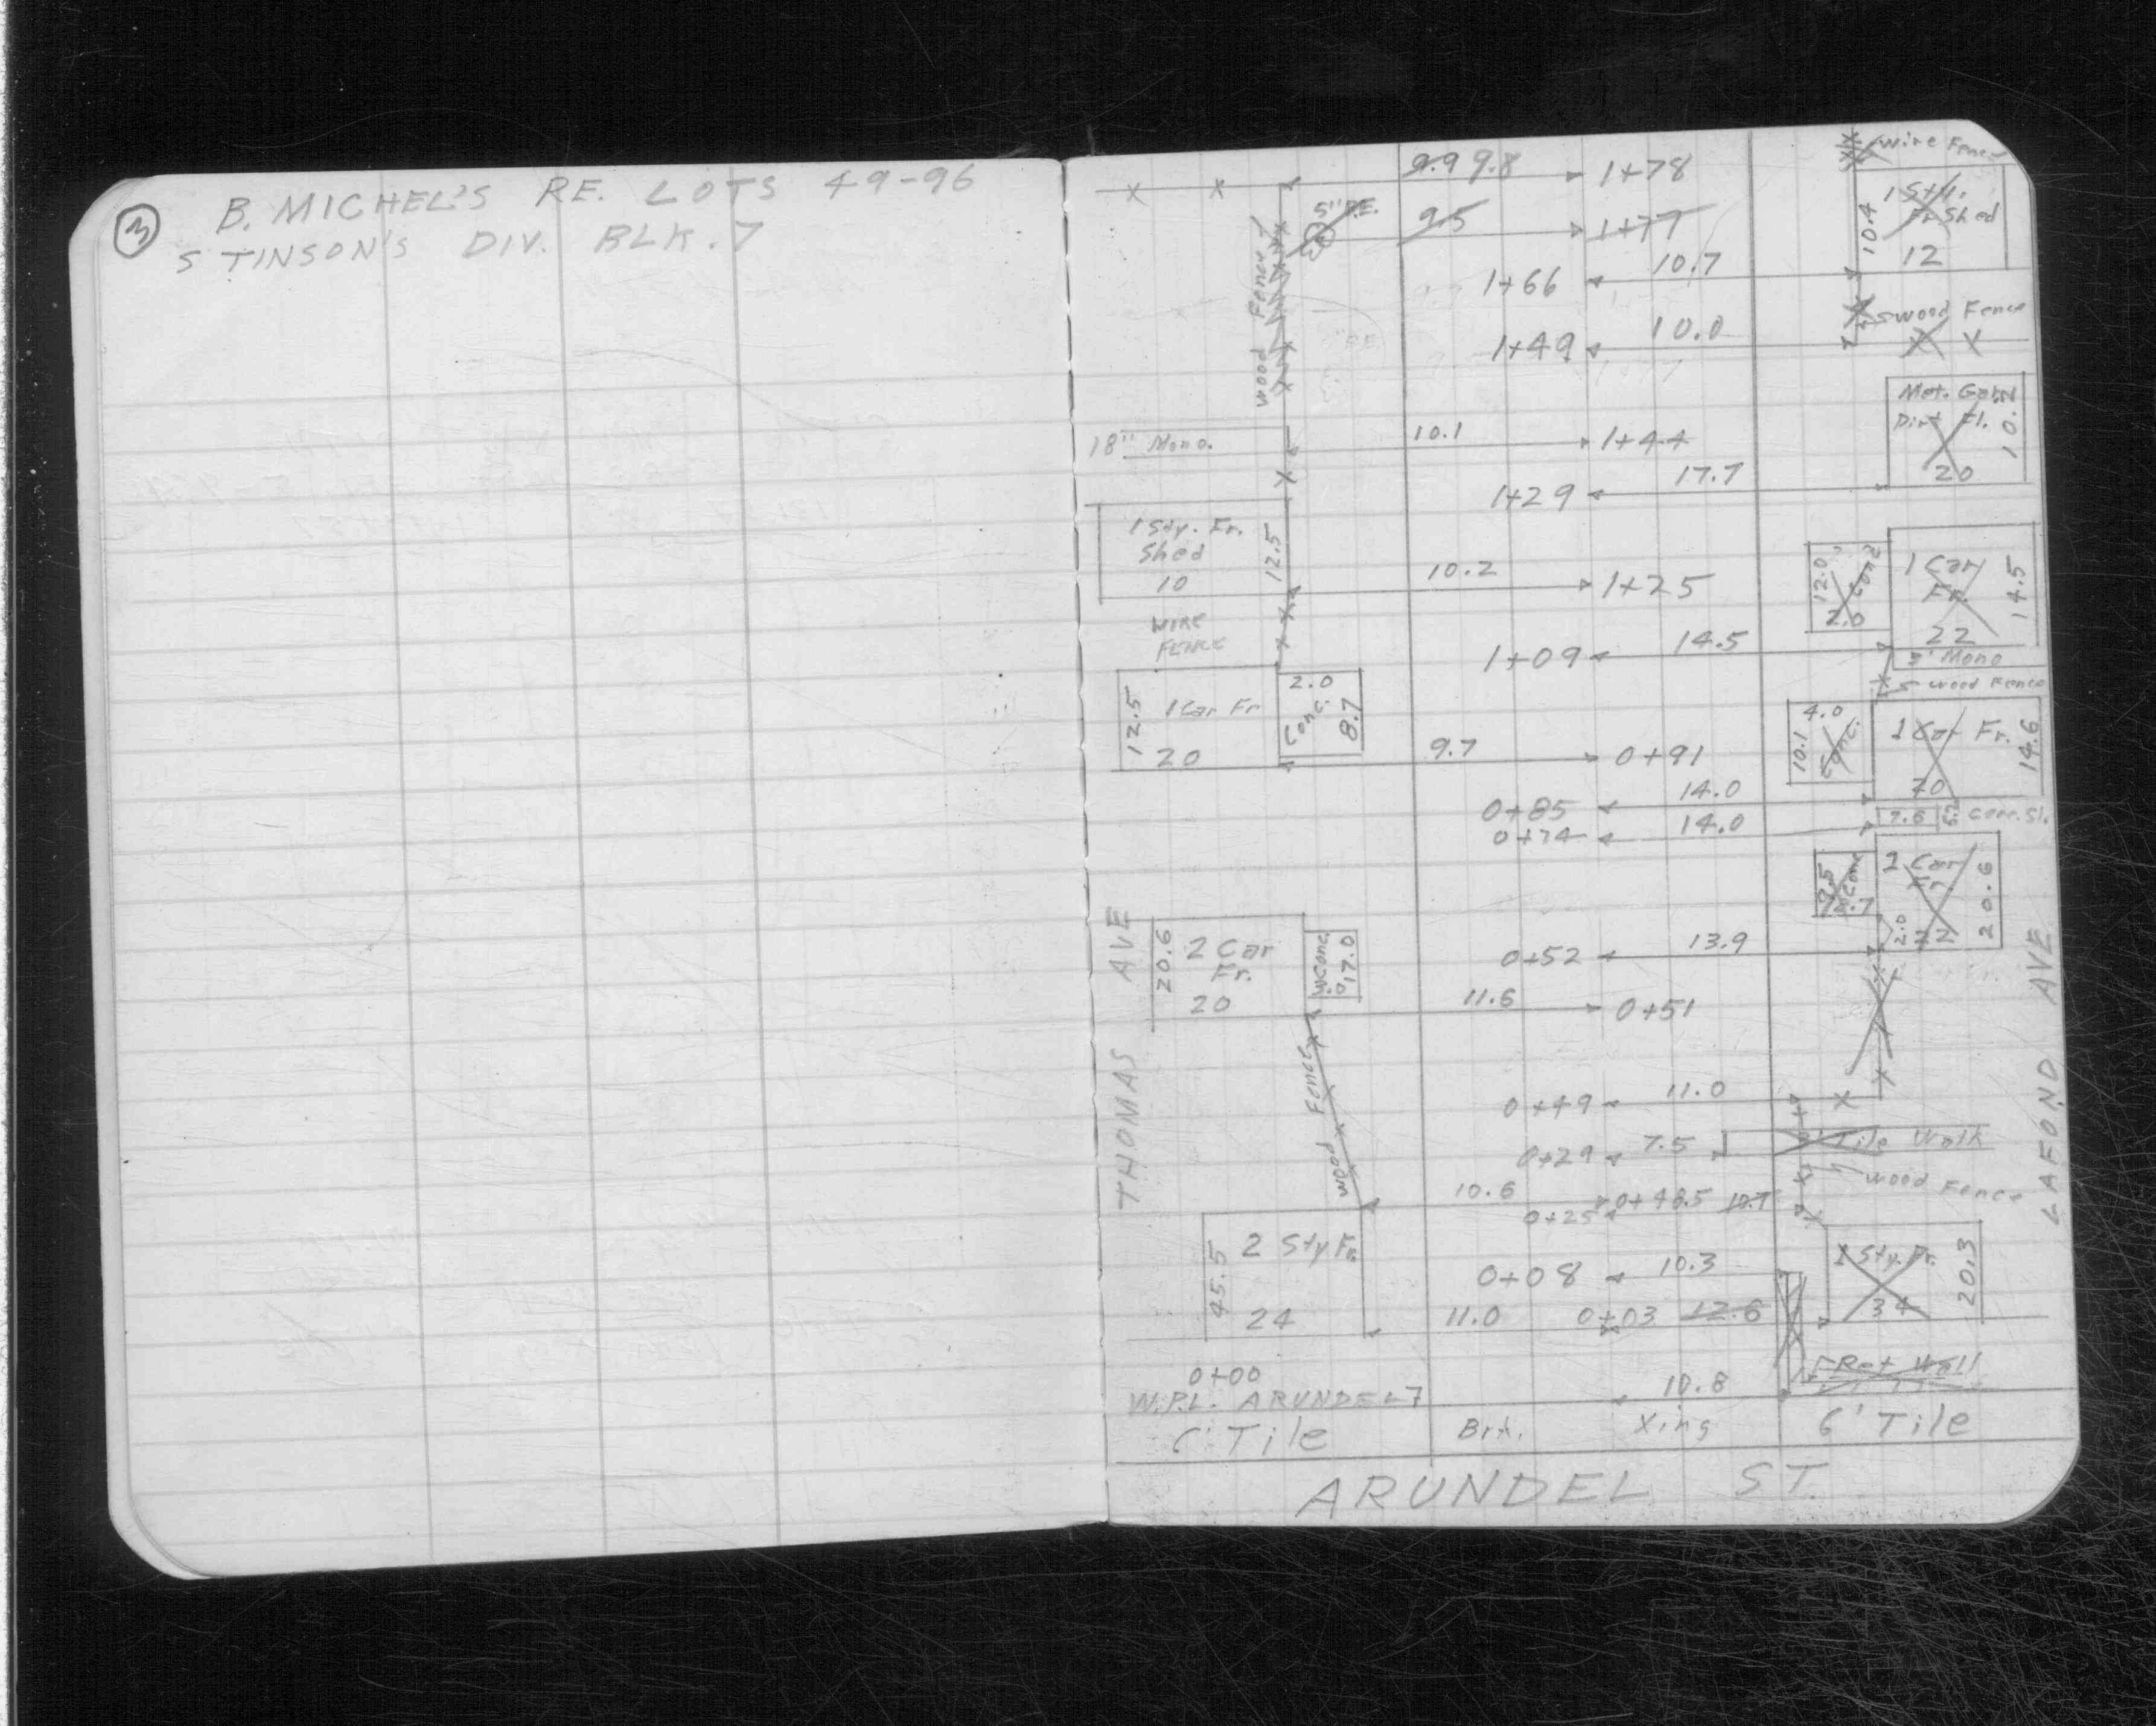 3
B. MICHEL'S RE. LOTS 49-96
STINSON'S DIV. BLK. 7
9.9 9.8 1+78
Wire Fence
5" P.E. 95 1+77
1 Sty.
Fr Shed
10.4
12
Wood Fence
1+66 10.7
wood Fence
1+49 10.0
Met. Gar.
Dirt Fl.
10.2
20
18" Mono.
10.1 1+44
1+29 17.7
1 Sty. Fr.
Shed
10
12.5
10.2 1+25
12.0
Conc
2.0
1 Car
Fr.
14.5
22
WIRE
FENCE
1+09 14.5
Mono
wood Fence
12.5
1 Car Fr
20
2.0
Conc.
8.7
9.7 0+91
4.0
10.1
Conc.
1 Car Fr.
14.6
20
0+85 14.0
0+74 14.0
7.6
Corr. St.
9.5
Conc
2 Car
Fr.
20.6
2.0
22
THOMAS AVE
20.6
2 Car
Fr.
20
Conc.
17.0
0+52 13.9
11.6 0+51
Wood Fence
LAFOND AVE
0+49 11.0
0+29 7.5
Tile Walk
wood Fence
10.6 0+48.5 10.7
0+25
45.5
2 Sty Fr.
24
0+08 10.3
11.0 0+03 12.6
Sty. Fr.
20.3
34
Ret Wall
0+00
W.P.L. ARUNDEL
10.8
6' Tile Brk. Xing 6' Tile
ARUNDEL ST.